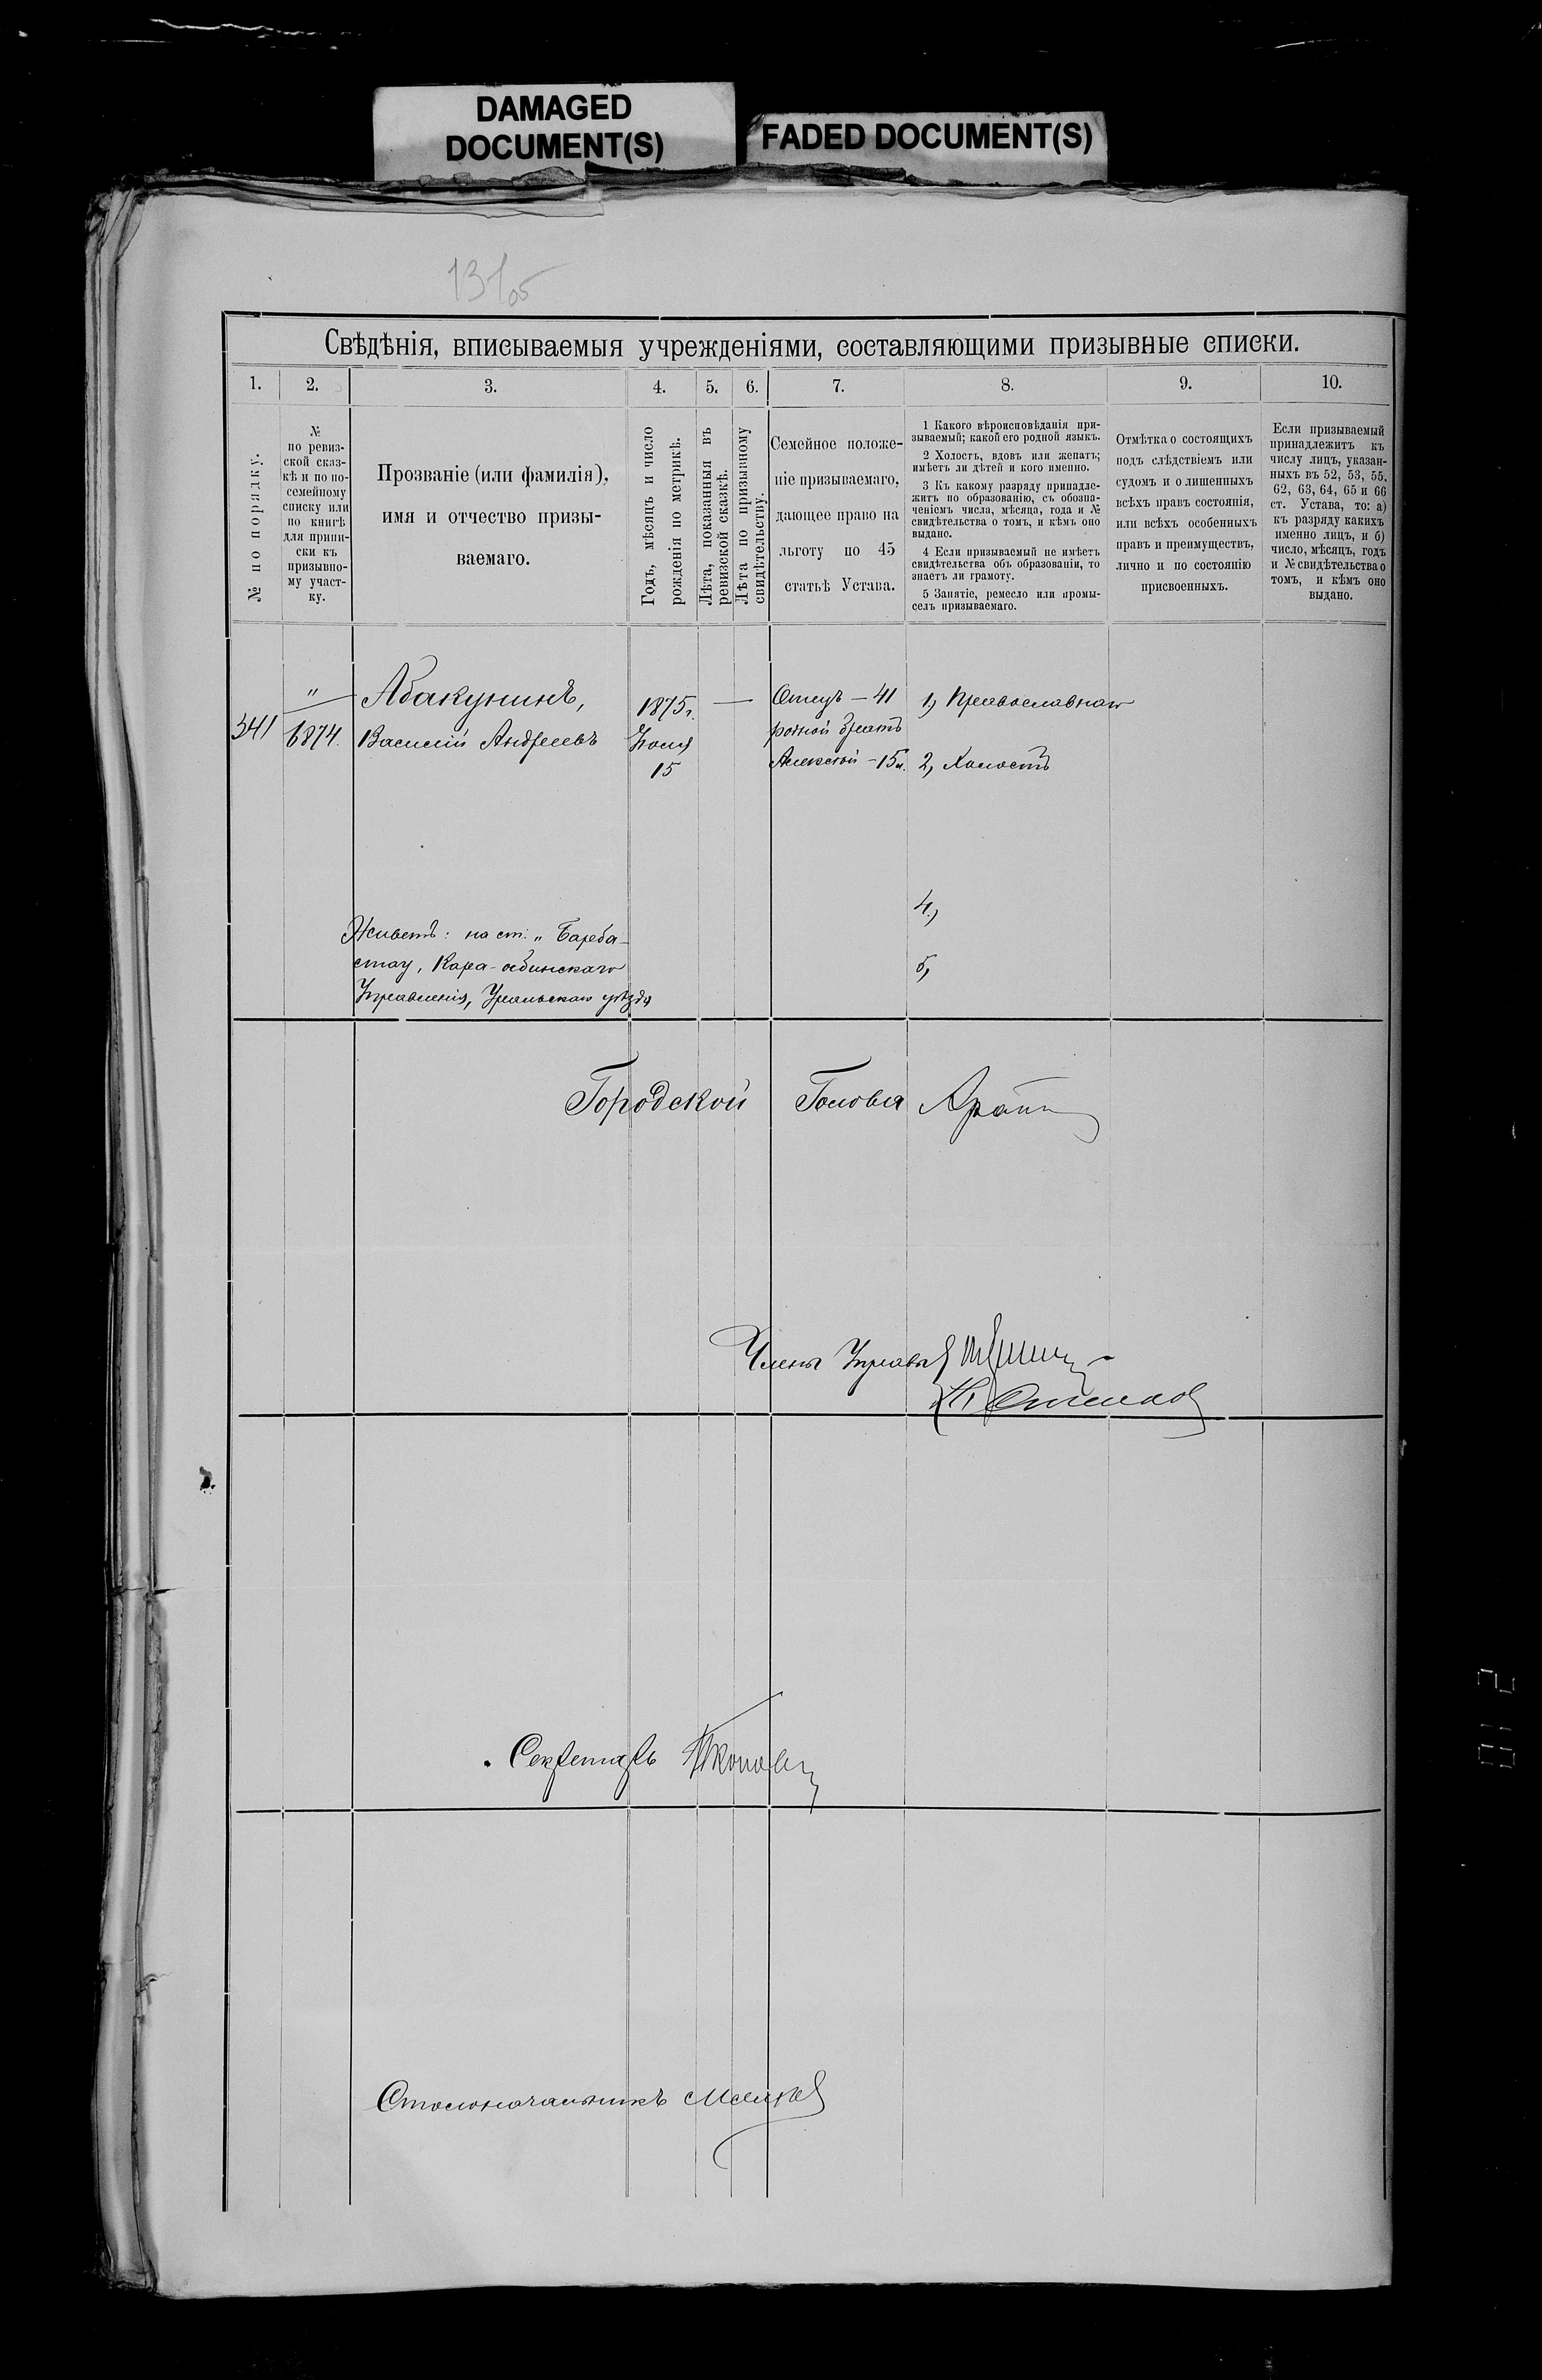 DAMAGED
DOCUMENT(S)
FADED DOCUMENT(S)
Свѣдѣнія, вписываемыя учрежденіями, составляющими призывные списки.
1. 2. 3. 4. 5. 6. 7. 8. 9. 10.
№ по порядку.
№
по ревиз-
ской сказ-
кѣ и по по-
семейному
списку или
по книгѣ
для припи-
ски къ
призывно-
му участ-
ку.
Прозваніе (или фамилія),
имя и отчество призы-
ваемаго.
Годъ, мѣсяцъ и число
рожденія по метрикѣ.
Лѣта, показанныя въ
ревизской сказкѣ.
Лѣта по призывному
свидѣтельству.
Семейное положе-
ніе призываемаго,
дающее право на
льготу по 45
статьѣ Устава.
1 Какого вѣроисповѣданія при-
зываемый; какой его родной языкъ.
2 Холостъ, вдовъ или женатъ;
имѣетъ ли дѣтей и кого именно.
3 Къ какому разряду принадле-
житъ по образованію, съ обозна-
ченіемъ числа, мѣсяца, года и №
свидѣтельства о томъ, и кѣмъ оно
выдано.
4 Если призываемый не имѣетъ
свидѣтельства объ образованіи, то
знаетъ ли грамоту.
5 Занятіе, ремесло или промы-
селъ призываемаго.
Отмѣтка о состоящихъ
подъ слѣдствіемъ или
судомъ и о лишенныхъ
всѣхъ правъ состоянія,
или всѣхъ особенныхъ
правъ и преимуществъ,
лично и по состоянію
присвоенныхъ.
Если призываемый
принадлежитъ къ
числу лицъ, указан-
ныхъ въ 52, 53, 55,
62, 63, 64, 65 и 66
ст. Устава, то: а)
къ разряду какихъ
именно лицъ, и б)
число, мѣсяцъ, годъ
и № свидѣтельства о
томъ, и кѣмъ оно
выдано.
341
"
6874.
Абакунинъ,
Василій Андреевъ
1875г.
Іюля
15
—
Отецъ — 41
родной братъ
Алексѣй - 15л.
1, Православнаго
2, Холостъ
4,
5,
Живетъ: на ст: „ Барба-
стау, Кара-обинскаго
Управленія, Уральскаго уѣзда
Городской Голова
Члены Управы
Секретарь
Столоначальникъ
012